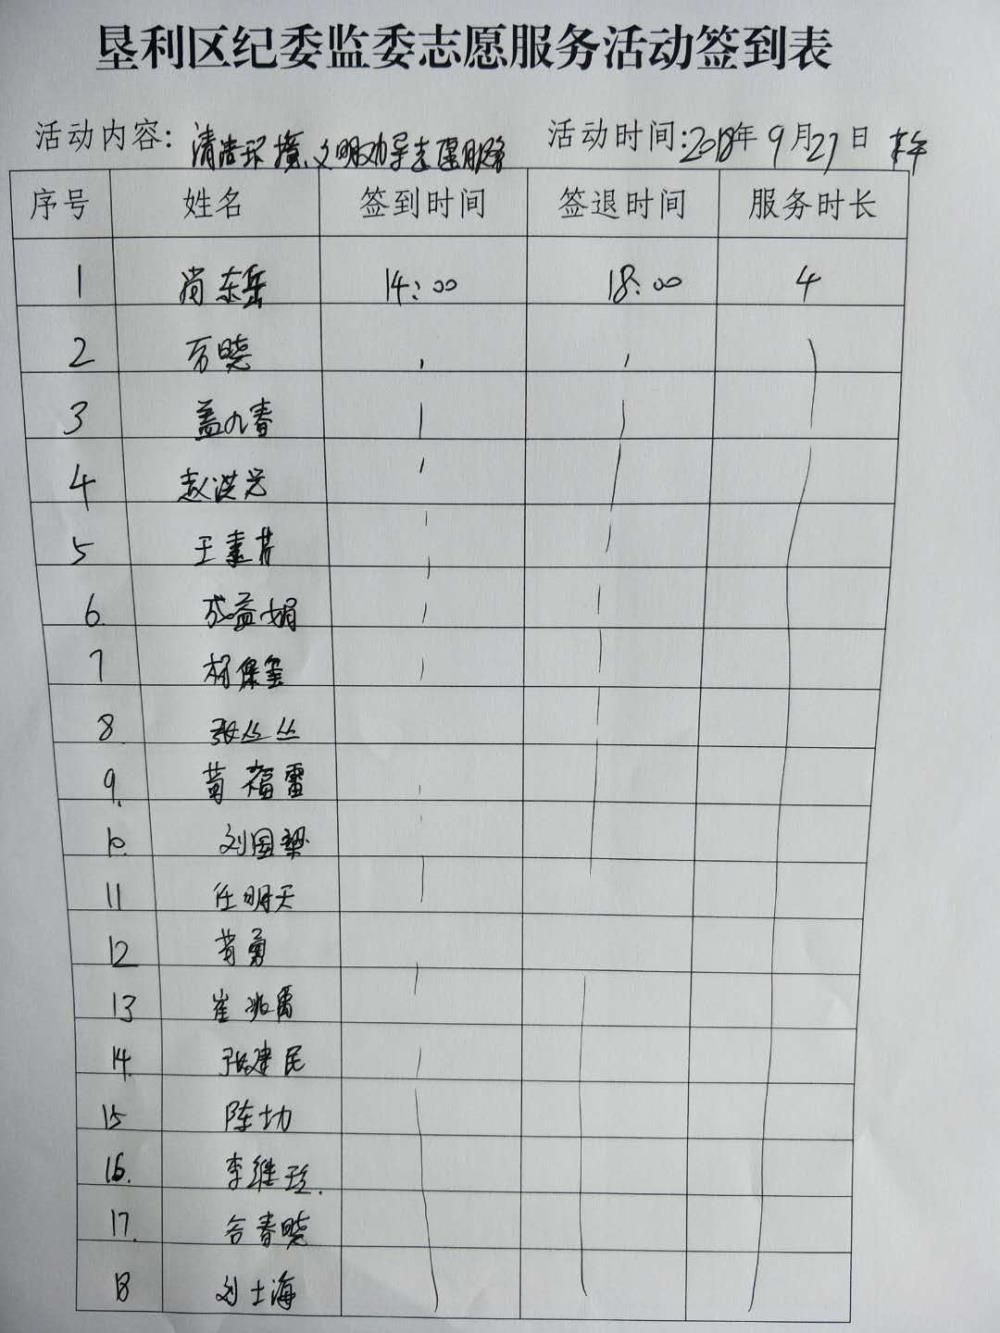 垦利区纪委监委志愿服务活动签到表
活动内容: 清洁环境、文明劝导志愿服务 活动时间: 2018年9月27日
序号 姓名 签到时间 签退时间 服务时长
1 尚东岳 14:00 18:00 4
2 万晓
3 盖九春
4 赵洪光
5 王素芳
6 成益娟
7 杨保玺
8 张丛丛
9. 福雷
10. 刘国梁
11 任明天
12 勇
13 崔兆雷
14. 张建民
15 陈功
16. 李继珍.
17. 春晓
18 刘士海